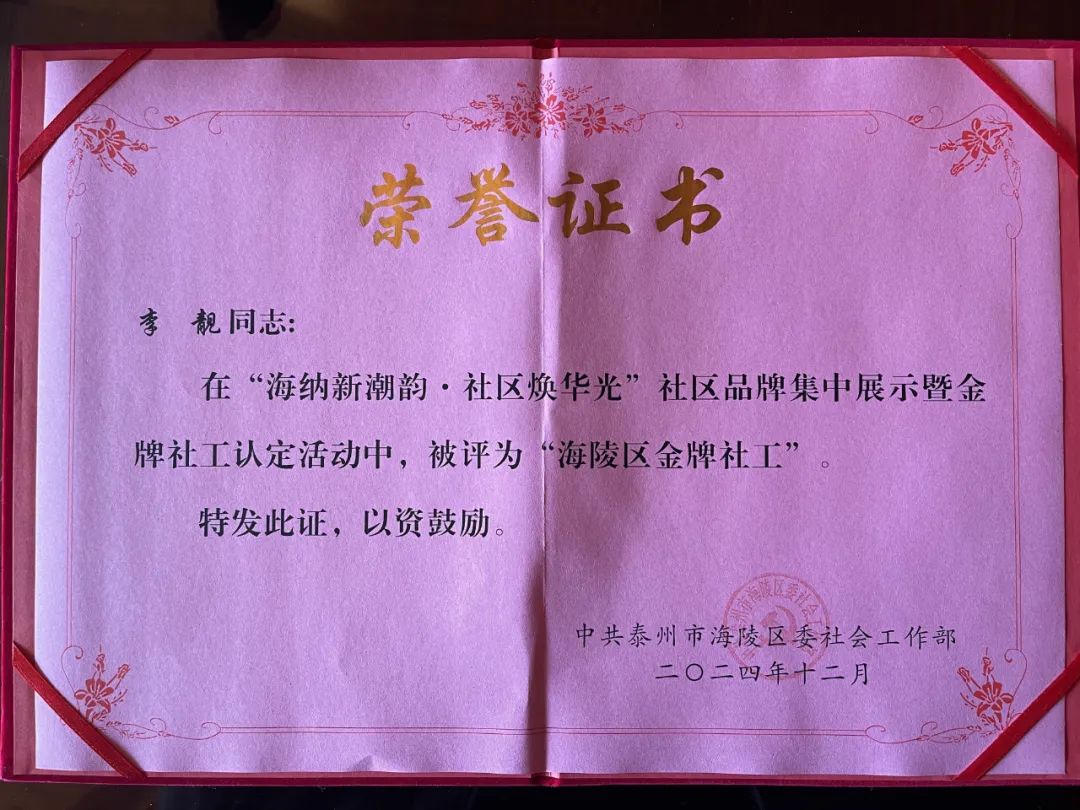 荣誉证书
李 靓同志:
在“海纳新潮韵·社区焕华光”社区品牌集中展示暨金
牌社工认定活动中，被评为“海陵区金牌社工”。
特发此证，以资鼓励。
中共泰州市海陵区委社会工作部
二〇二四年十二月